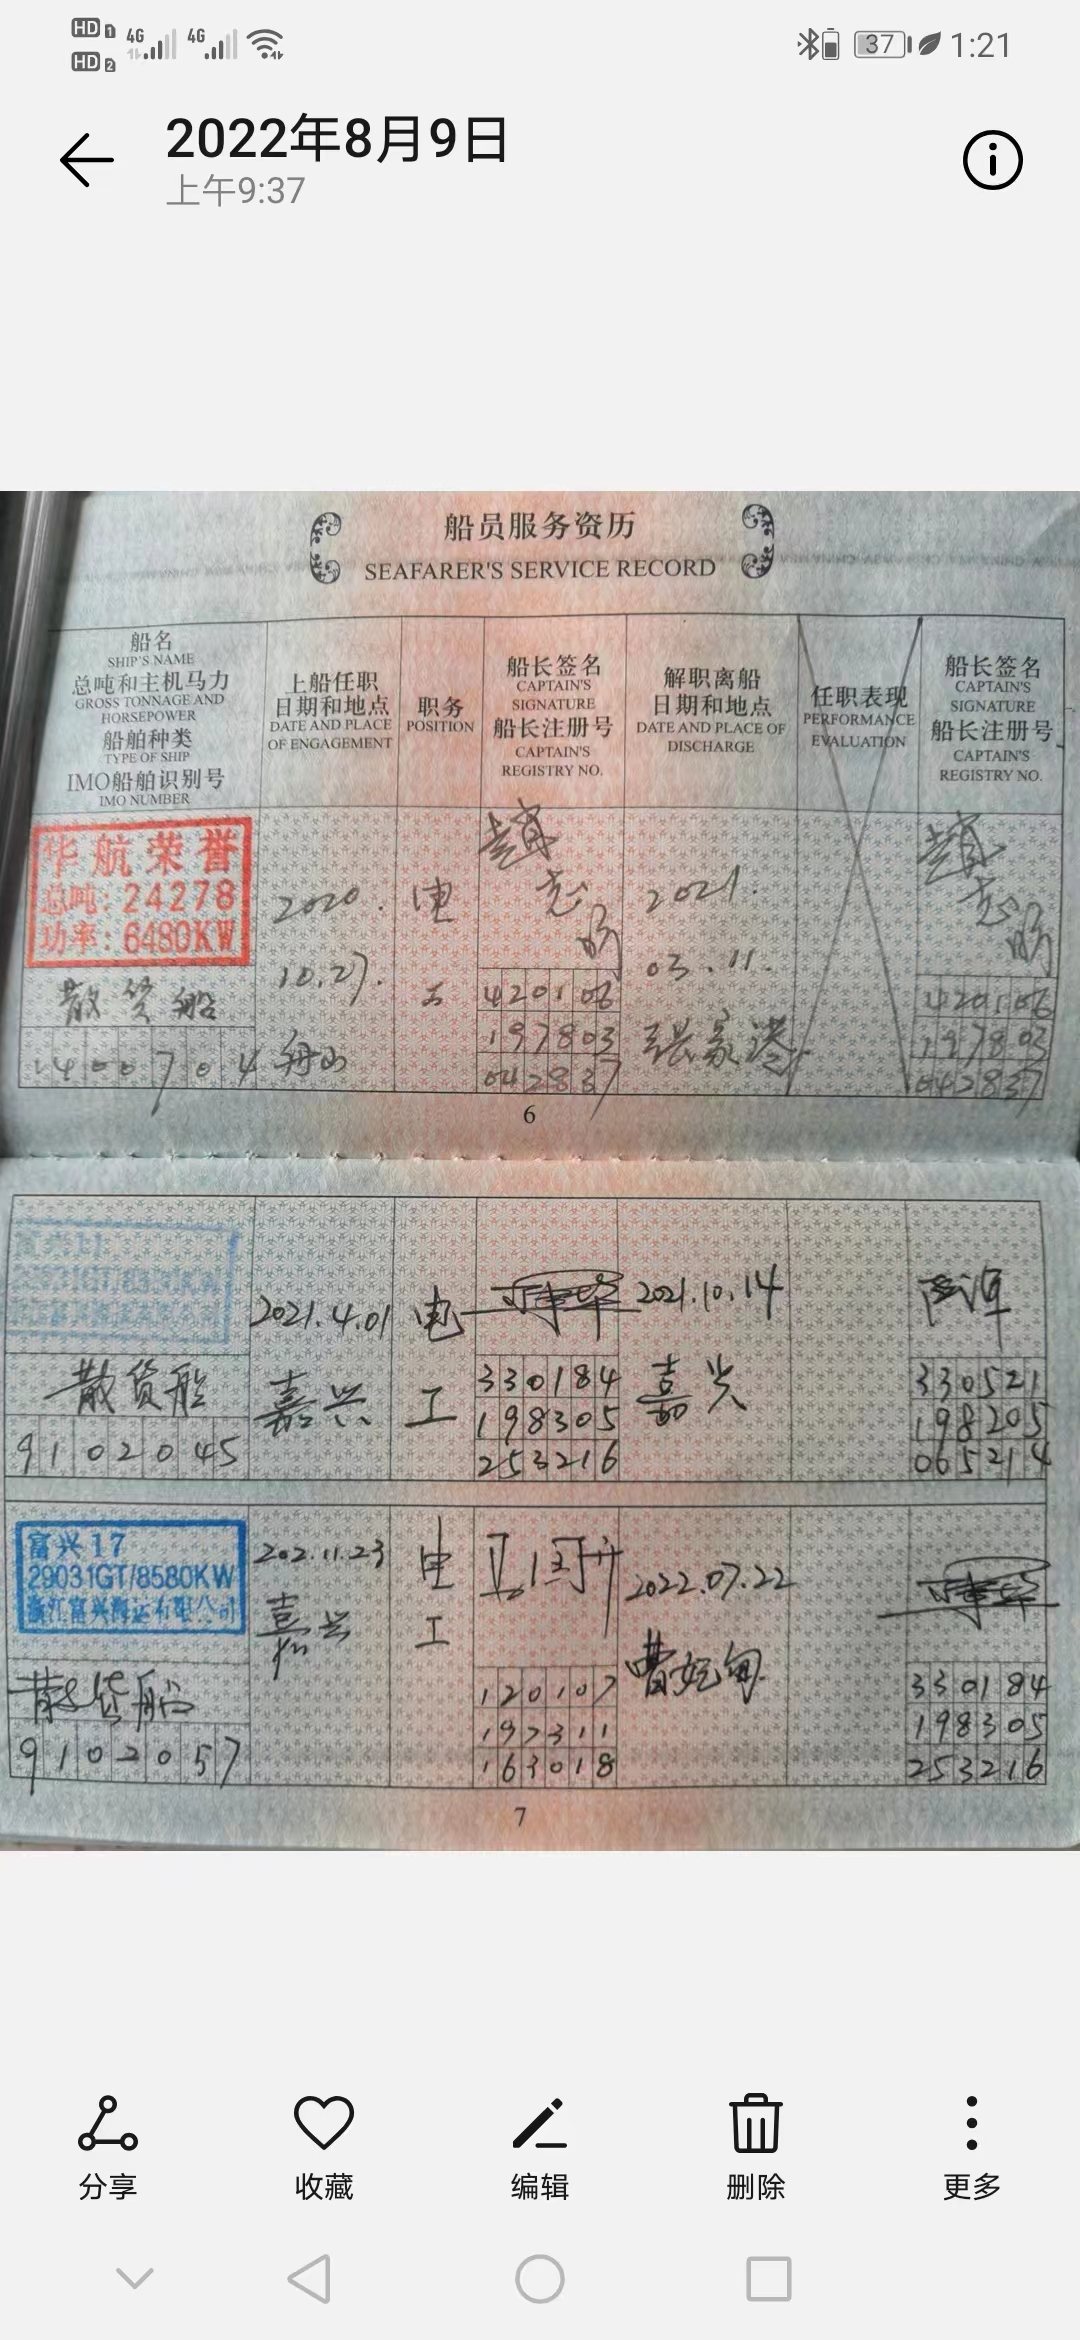 HD 1
HD 2
4G
4G
37
1:21
2022年8月9日
上午9:37
船员服务资历
SEAFARER'S SERVICE RECORD
船名
SHIP'S NAME
总吨和主机马力
GROSS TONNAGE AND
HORSEPOWER
船舶种类
TYPE OF SHIP
IMO船舶识别号
IMO NUMBER
上船任职
日期和地点
DATE AND PLACE
OF ENGAGEMENT
职务
POSITION
船长签名
CAPTAIN'S
SIGNATURE
船长注册号
CAPTAIN'S
REGISTRY NO.
解职离船
日期和地点
DATE AND PLACE OF
DISCHARGE
任职表现
PERFORMANCE
EVALUATION
船长签名
CAPTAIN'S
SIGNATURE
船长注册号
CAPTAIN'S
REGISTRY NO.
华航荣誉
总吨:24278
功率:6480KW
散货船
2020.
10.27.
舟山
电
420106
197803
042837
2021.
03.11.
张家港
420106
197803
042837
6
散货船
9102045
2021.4.01
嘉兴
电
工
330184
198305
253216
2021.10.14
嘉兴
330521
198205
065214
富兴17
29031GT/8580KW
浙江富兴海运有限公司
散货船
9102057
202.11.23
嘉兴
电
工
120107
197311
163018
2022.07.22
曹妃甸
330184
198305
253216
7
分享
收藏
编辑
删除
更多